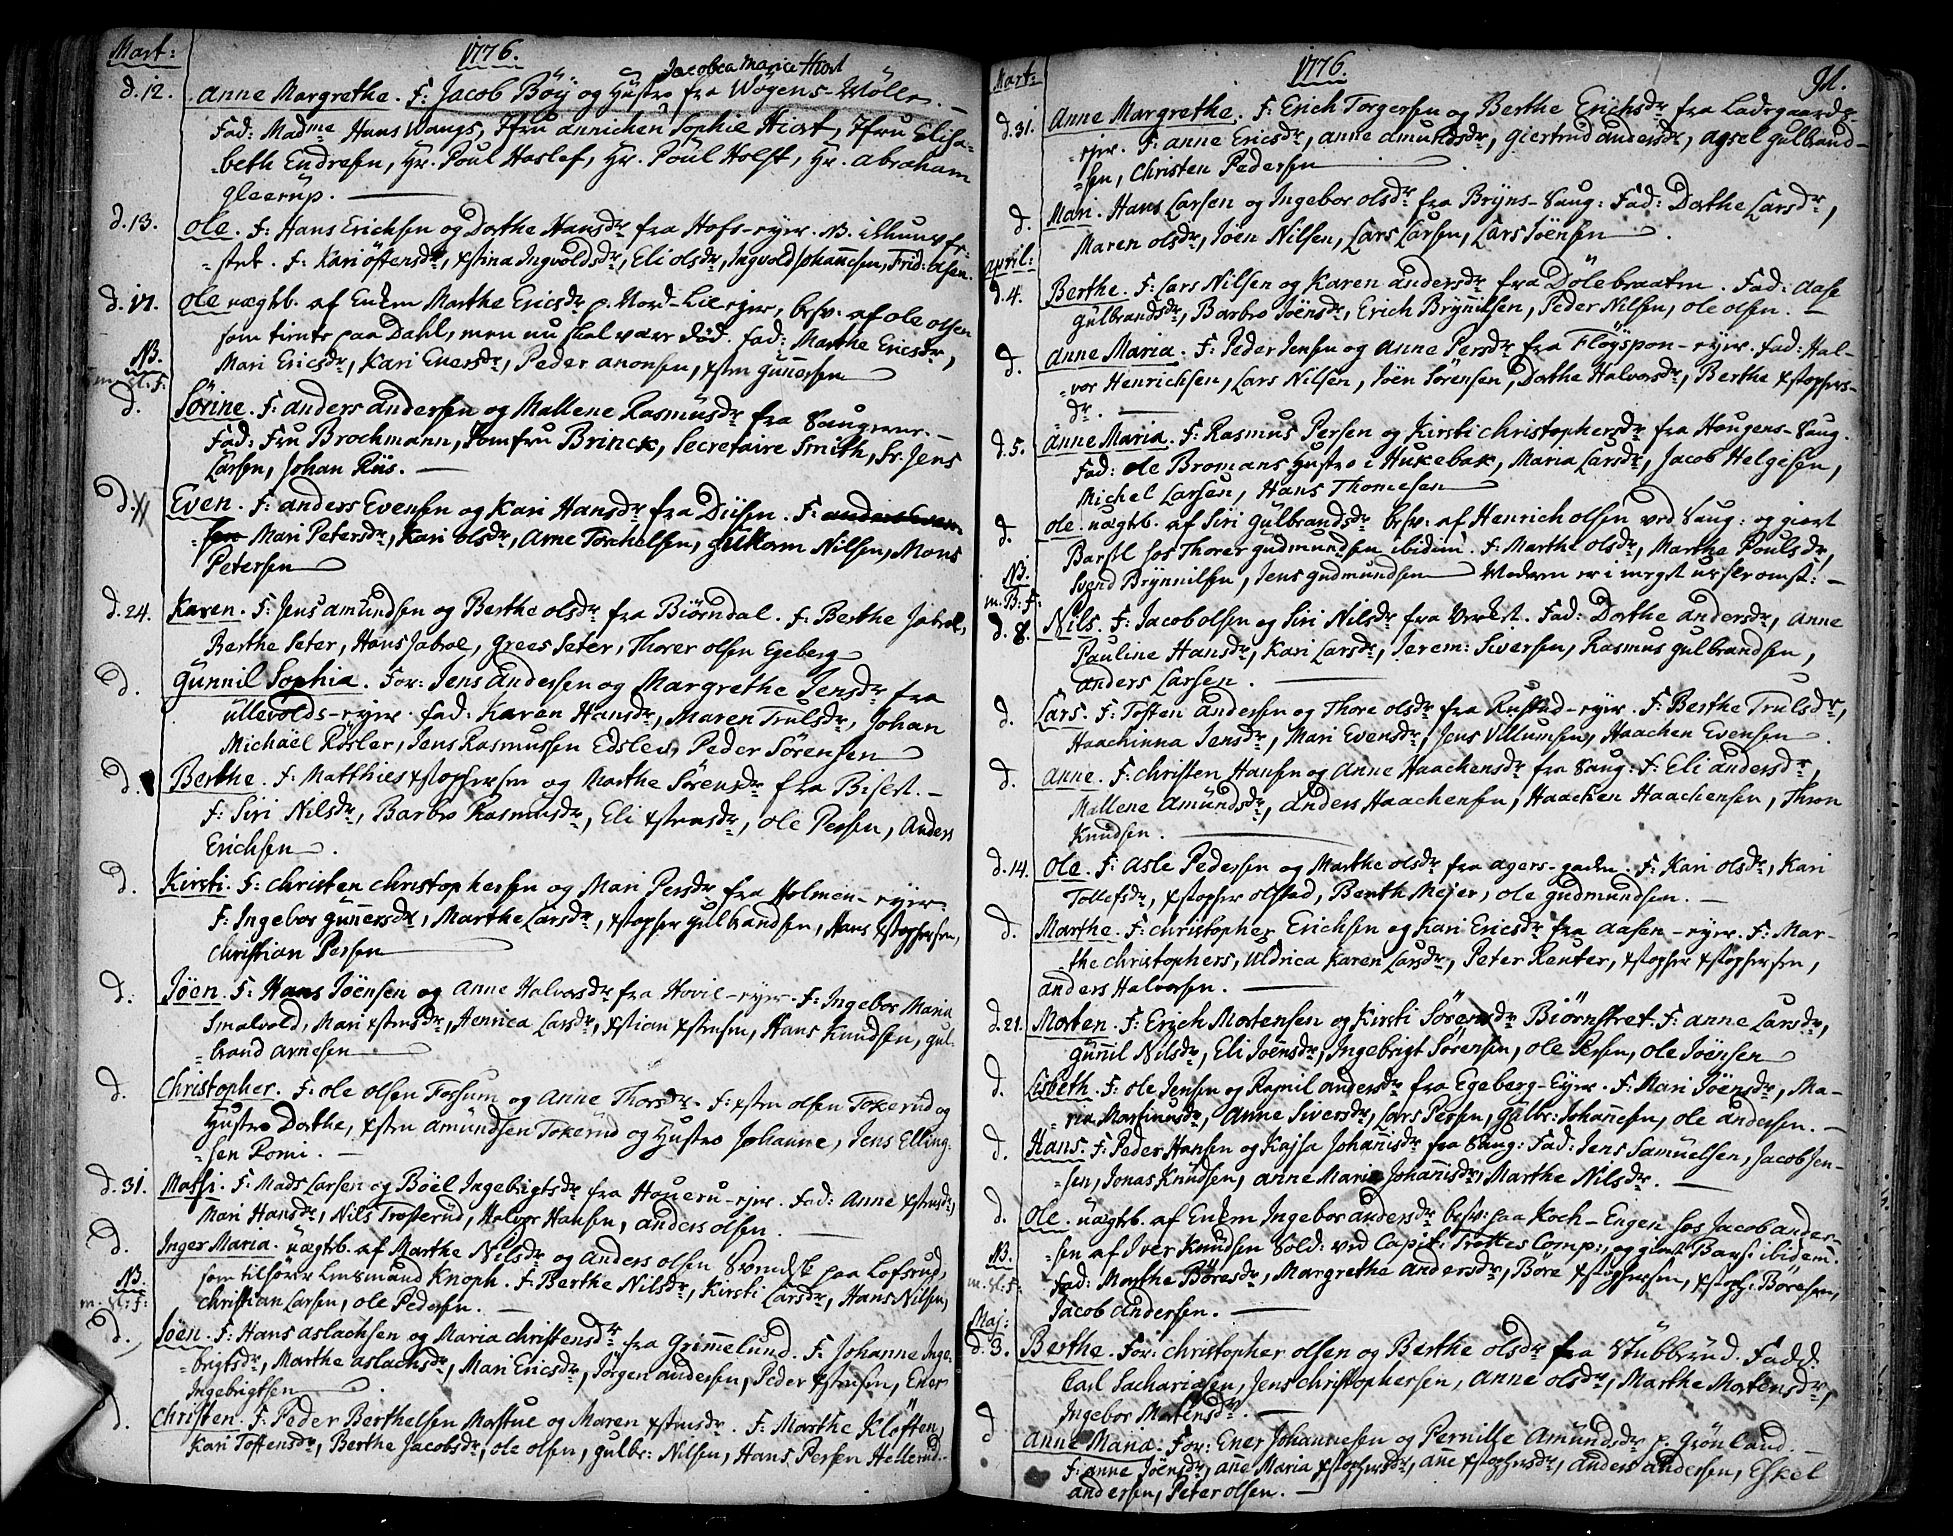 Mart: 1776.
Jacobea Maria Hiort
d. 12. Anne Margrethe. F: Jacob Böy og Hustro fra Wøgens-Mölle. —
Fad: Madme Hans Wangs, Jfru Annichen Sophie Hiort, Jfru Elisa-
-beth Endresen, Hr. Poul Haslef, Hr. Poul Holst, Hr. Abraham
Gleerup. —
d. 13. Ole. F: Hans Erichsen og Dorthe Hansdr fra Hofs-eyer. NB.
-stet. F: Kari Östensdr, Xstina Ingvoldsdr, Eli Olsdr, Ingvold Johannesen, Frid: Olsen.
d. 17. Ole uægtb. af Enkem Marthe Ericsdr p. Nord-Lie eyer, besv: af Ole Olsen
som tiente paa Dahl, men nu skal være død. Fad: Marthe Ericsdr,
NB. Mari Ericsdr, Kari Enersdr, Peder Anonsen, Xsten Gunnersen
m. sl: f:
d. Sörine. F: Anders Andersen og Mallene Rasmusdr fra Saugene. —
Fad: Fru Brochmann, Jomfru Brinck, Secretaire Smith, Sr. Jens
Larsen, Johan Riis. —
d. Even. F: Anders Evensen og Kari Hansdr fra Diisen. F: Anders Even-
-sen Mari Petersdr, Kari Olsdr, Arne Torchelsen, Guttorm Nilsen, Mons
Petersen
d. 24. Karen. F: Jens Amundsen og Berthe Olsdr fra Biörndal. F: Berthe Jabroe,
Berthe Seter, Hans Jabroe, Grees Seter, Thorer Olsen Egeberg
d. Gunnil Sophia. For: Jens Andersen og Margrethe Jensdr fra
Ullevolds-eyer. Fad: Karen Hansdr, Maren Trulsdr, Johan
Michäel Rösler, Jens Rasmussen Edslev, Peder Sörensen
d. Berthe. F: Matthies Xstophersen og Marthe Sörensdr fra Biselt. —
F: Siri Nilsdr, Barbro Rasmusdr, Eli Xstensdr, Ole Persen, Anders
Erichsen.
d. Kirsti. F: Christen Christophersen og Mari Persdr fra Holmen-eyer.
F: Ingebor Gunnersdr, Marthe Larsdr, Xstopher Gulbrandsen, Hans Xstophersen,
Christian Persen
d. Jöen. F: Hans Jöensen og Anne Halvorsdr fra Hovil-eyer. F: Ingebor Maria
Smalvold, Mari Xstensdr, Hennica Larsdr, Xstian Xstensen, Hans Knudsen, Gul-
-brand Arnesen
d. Christopher. F: Ole Olsen Fossum og Anne Thorsdr. F: Xsten Olsen Tokerud og
Hustro Dorthe, Xsten Amundsen Tokerud og Hustro Johanne, Jens Elling-
-sen Romi. —
d. 31. Massi. F: Mads Larsen og Böel Ingebrigtsdr fra Haueru-eyer. Fad: Anne Xstensdr,
Mari Hansdr, Nils Trosterud, Halvor Hansen, Anders Olsen.
d. Inger Maria. uægtb. af Marthe Nilsdr og Anders Olsen Svendsk paa Lofsrud,
NB. som tilhörer Lensmand Knoph. F: Berthe Nilsdr, Kirsti Larsdr, Hans Nilsen,
m. sl: f: Christian Larsen, Ole Pedersen. —
d. Jöen. F: Hans Aslachsen og Maria Christensdr fra Grimelund. F: Johanne Inge-
-brigtsdr, Marthe Aslachsdr, Mari Ericsdr, Jörgen Andersen, Peder Xstensen, Ener
Ingebrigtsen
d. Christen. F: Peder Berthelsen Mastue og Maren Xstensdr. F: Marthe Klöften,
Kari Tostensdr, Berthe Jacobsdr, Ole Olsen, Gulbr: Nilsen, Hans Persen Hellerud.
Mart: 1776. 91.
d. 31. Anne Margrethe. F: Erich Torgersen og Berthe Erichsdr fra Ladegaards-
-eyer. F: Anne Ericsdr, Anne Amundsdr, Giertrud Andersdr, Agsel Gulbrand-
-sen, Christen Pedersen
d. Mari. Hans Larsen og Ingebor Olsdr fra Bryns-Saug: Fad: Dorthe Larsdr,
Maren Olsdr, Jöen Nilsen, Lars Larsen, Lars Jöensen
April:
d. 4. Berthe. F: Lars Nilsen og Karen Andersdr fra Dölebraaten. Fad: Aase
Gulbrandsdr, Barbro Jöensdr, Erich Brynnilsen, Peder Nilsen, Ole Olsen. —
d. Anne Maria. F: Peder Jensen og Anne Persdr fra Flöyspon-eyer. Fad: Hal-
-vor Henrichsen, Lars Nilsen, Jöen Sörensen, Dorthe Halvorsdr, Berthe Xstophers-
dr. —
d. 5. Anne Maria. F: Rasmus Persen og Kirsti Christophersdr fra Hougens-Saug.
Fad: Ole Bromans Hustro i Hukebak, Maria Larsdr, Jacob Helgesen,
Michel Larsen, Hans Thomesen
d. Ole. uægtb. af Siri Gulbrandsdr besv: af Henrich Olsen ved Saug: og giort
Barsel hos Thorer Gudmundsen ibidem. F: Marthe Olsdr, Marthe Poulsdr,
NB. Svend Brynnilsen, Jens Gudmundsen Moderen er i meget usel omst: —
m. B: F:
d. 8. Nils. F: Jacob Olsen og Siri Nilsdr fra Verket. Fad: Dorthe Andersdr, Anne
Pauline Hansdr, Kari Larsdr, Jerem: Siversen, Rasmus Gulbrandsen,
Anders Larsen. —
d. Lars. F: Tosten Andersen og Thore Olsdr fra Rustad-eyer. F: Berthe Trulsdr,
Haachinna Jensdr, Mari Evensdr, Jens Villumsen, Haachen Evensen.
d. Anne. F: Christen Hansen og Anne Haachensdr fra Saug: F: Eli Andersdr,
Mallene Amundsdr, Anders Haachensen, Haachen Haachensen, Thron
Knudsen. —
d. 14. Ole. F: Asle Pedersen og Marthe Olsdr fra Agers-gaden. F: Kari Olsdr, Kari
Tollefsdr, Xstopher Olstad, Benth Mejer, Ole Gudmundsen. —
d. Marthe. F: Christopher Erichsen og Kari Ericsdr fra Aasen-eyer. F: Mar-
the Christophers, Uldrica Karen Larsdr, Peter Reuter, Xstopher Xstophersen,
Anders Halvorsen. —
d. 21. Morten. F: Erich Mortensen og Kirsti Sörensdr Biörnstret. F: Anne Larsdr,
Gunnil Nilsdr, Eli Joensdr, Ingebrigt Sörensen, Ole Persen, Ole Jöensen
d. Lisbeth. F: Ole Jensen og Ragnil Andersdr fra Egeberg-Eyer. F: Mari Jöensdr, Ma-
-ria Martinusdr, Anne Siversdr, Lars Persen, Gulbr: Johannesen, Ole Andersen. —
d. Hans. F: Peder Hansen og Kajsa Johanisdr fra Saug: Fad: Jens Samuelsen, Jacob Jen-
-sen, Jonas Knudsen, Anne Maria Johanisdr, Marthe Nilsdr. —
d. Ole. uægtb. af Enkem Ingebor Andersdr besv: paa Koch-Engen hos Jacob Ander-
NB. -sen af Iver Knudsen Sold: ved Capit: Trottes Comp:, og giort Bars: ibidem.
m. sl: F: Fad: Marthe Böresdr, Margrethe Andersdr, Böre Xstophersen, Xstoph: Böresen,
Jacob Andersen. —
Maj:
d. 3. Berthe. For: Christopher Olsen og Berthe Olsdr fra Stubberud. Fadd:
Carl Sachariasen, Jens Christophersen, Anne Olsdr, Marthe Mortensdr,
Ingebor Mortensdr. —
d Anne Maria. For: Ener Johannesen og Pernille Amundsdr p. Grönland. —
F: Anne Jöensdr, Anne Maria Xstophersdr, Anne Xstophersdr, Anders Andersen, Eskel
Andersen, Peter Olsen. —